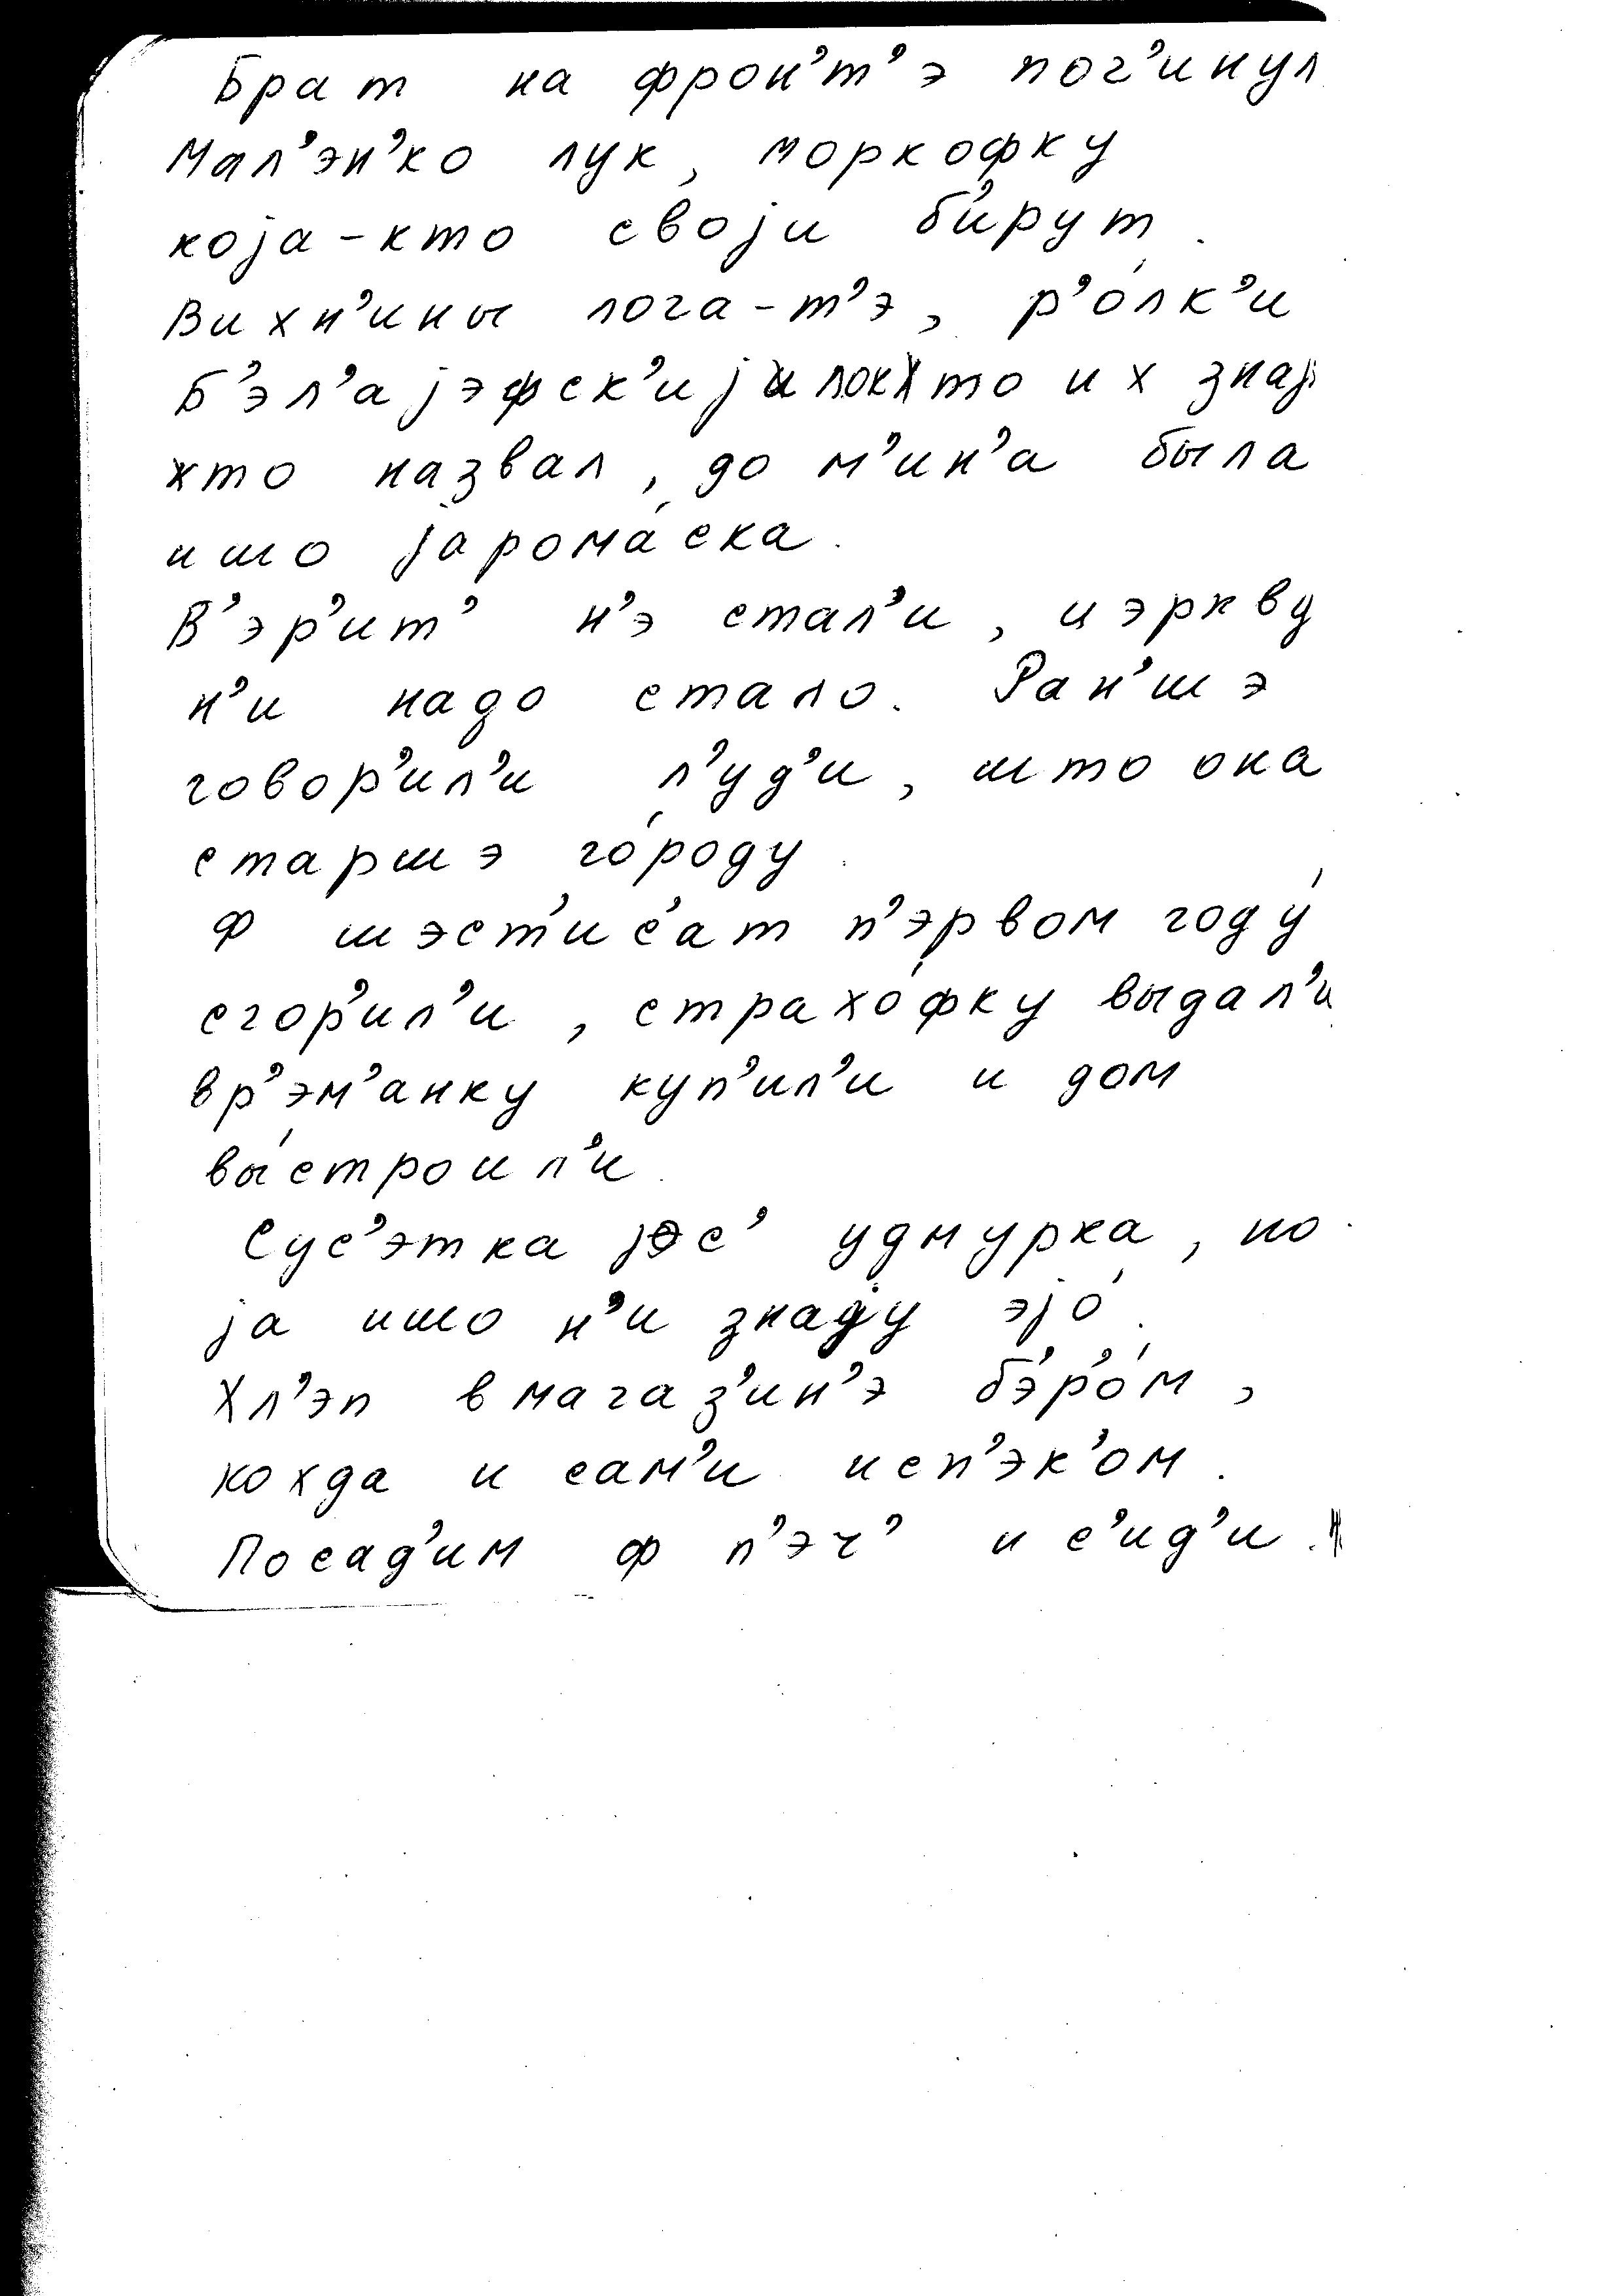 Брат на фрон’т’э пог’инул
Мал’эн’ко лук, моркофку
која-кто своји б’ирут.
Вихн’ины лога-т’э, р’о́лк’и
Б’эл’ајэфск’иј и хто их знај
хто назвал, до м’ин’а была
ишо јарома́ска.
В’эр’ит’ н’э стал’и, цэркву
н’и надо стало. Ран’шэ
говор’ил’и л’уд’и, што она
старшэ го́роду.
Ф шэст’ис’ат п’эрвом году́
сгор’ил’и, страхо́фку выдал’и
вр’эм’анку куп’ил’и и дом
вы́строил’и.
Сус’этка јэс’ удмурка, но
ја ишо н’и знају эјо́.
Хл’эп в магаз’ин’э б’эр’о́м,
кохда и сам’и исп’эк’ом.
Посад’им ф п’эч’ и с’ид’и.